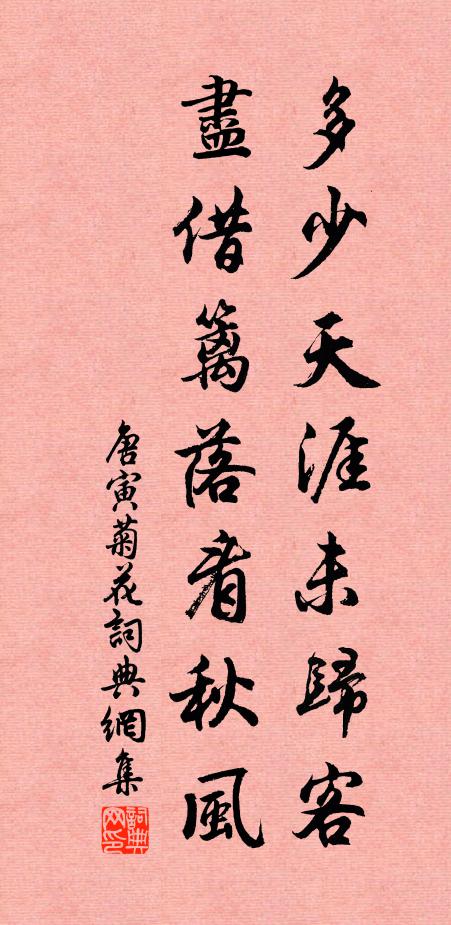 多少天涯未歸客
盡借籬落看秋風
唐寅菊花詞典網集
詞典网印